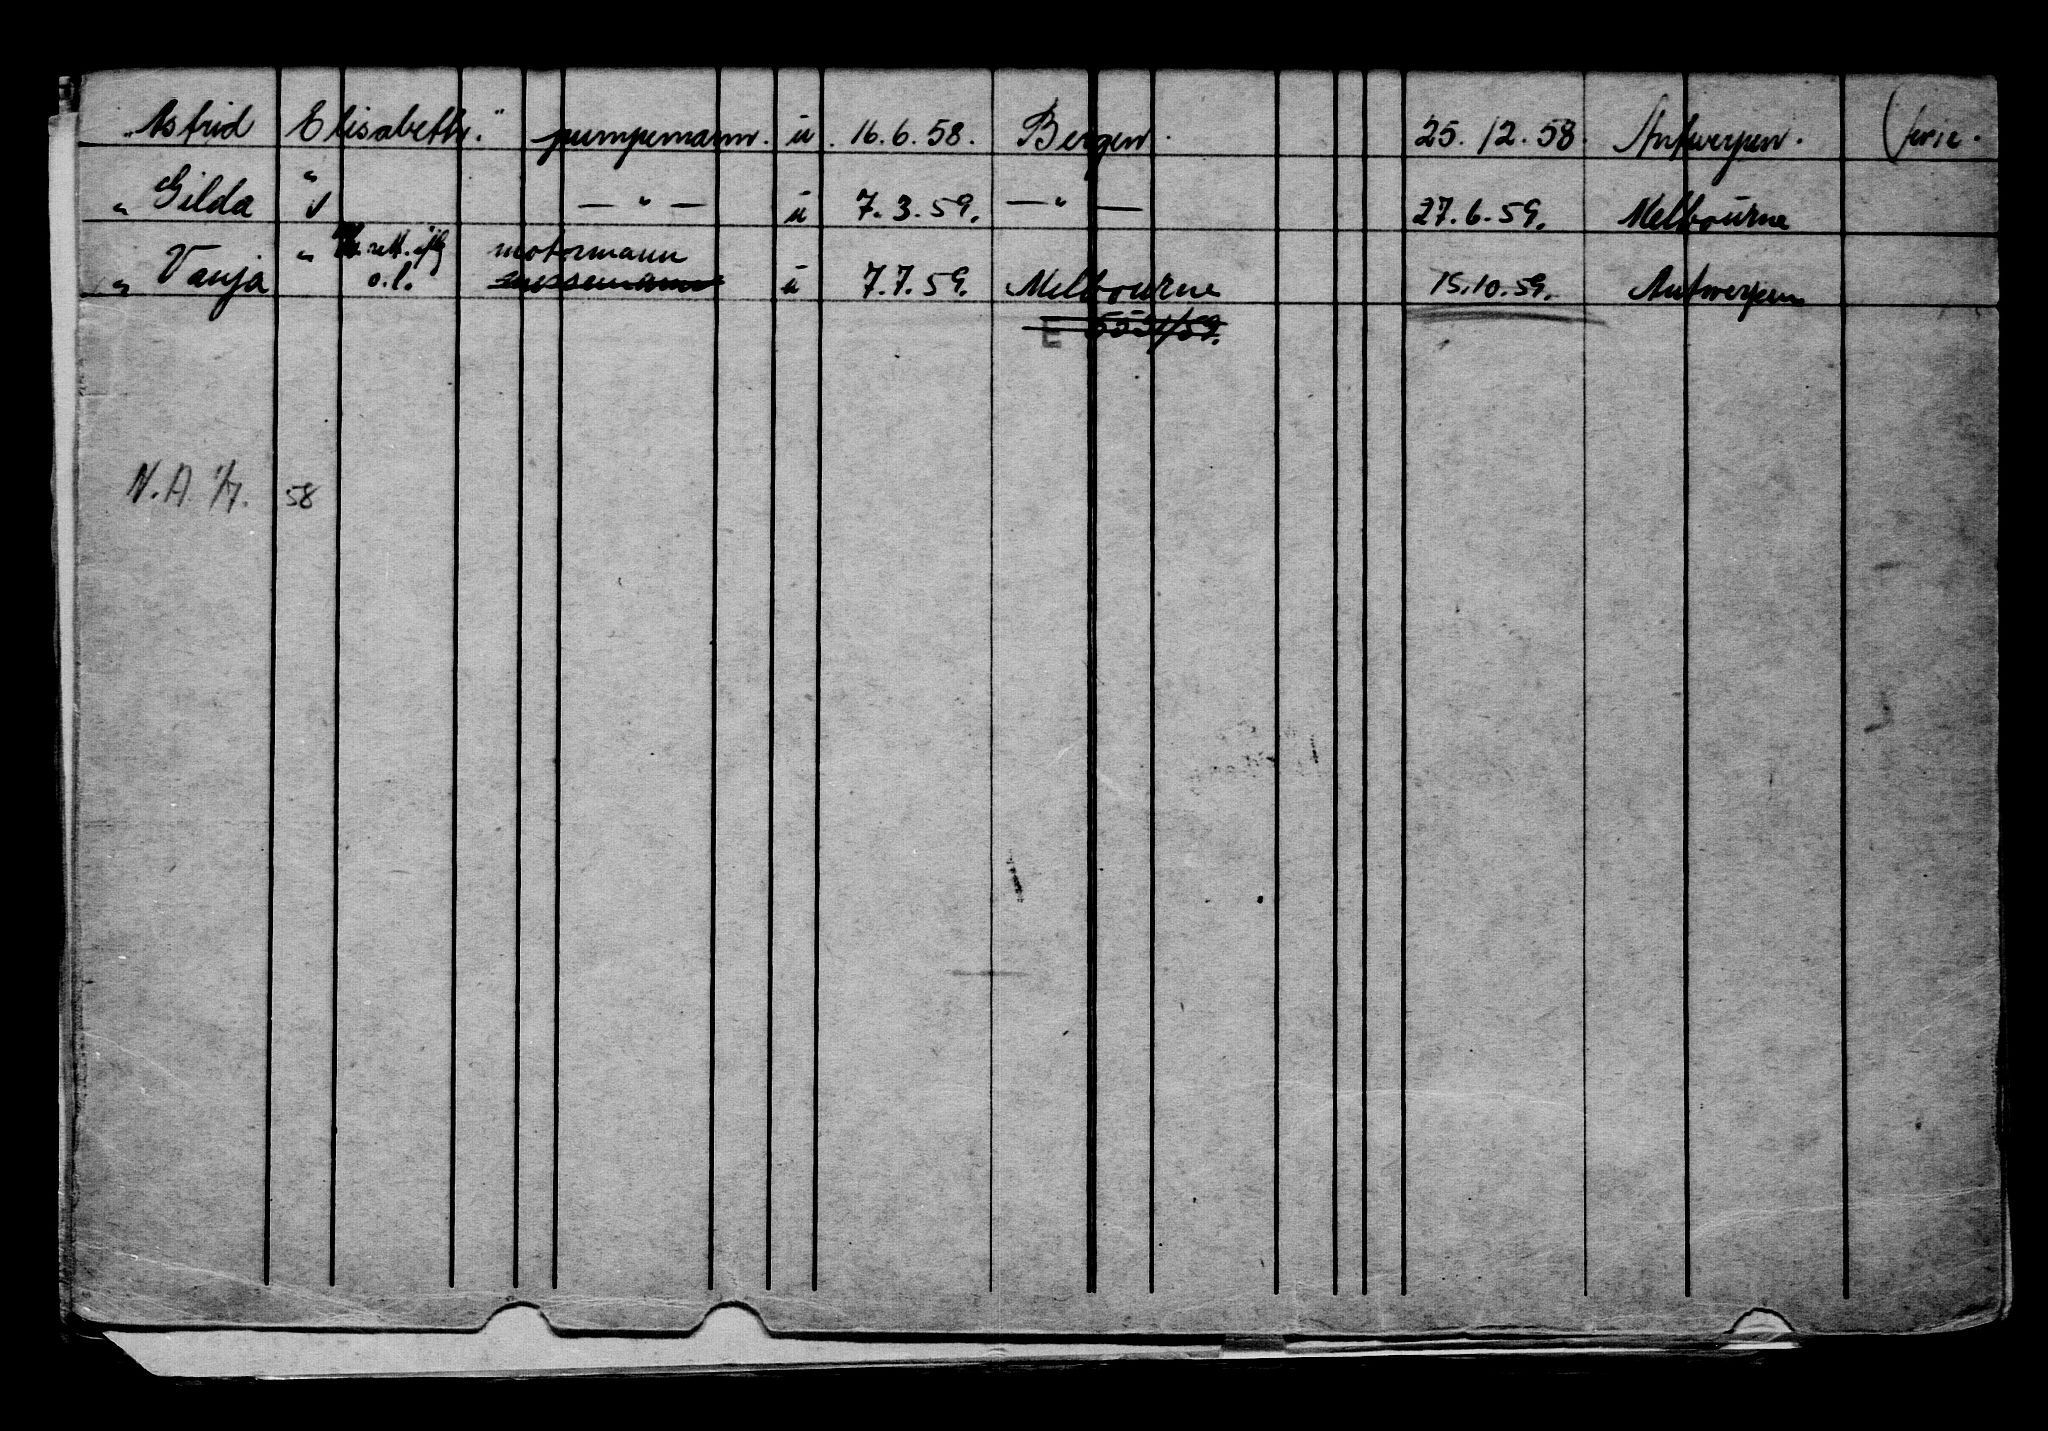 "Astrid Elisabeth." pumpemann. u. 16.6.58. Bergen. 25.12.58. Antwerpen. (ferie.
" Gilda " — " — u 7.3.59. — " — 27.6.59. Melbourne
" Vanja " o.l. motormann u 7.7.59. Melbourne 15.10.59. Antwerpen
N.A. 1/7. 58